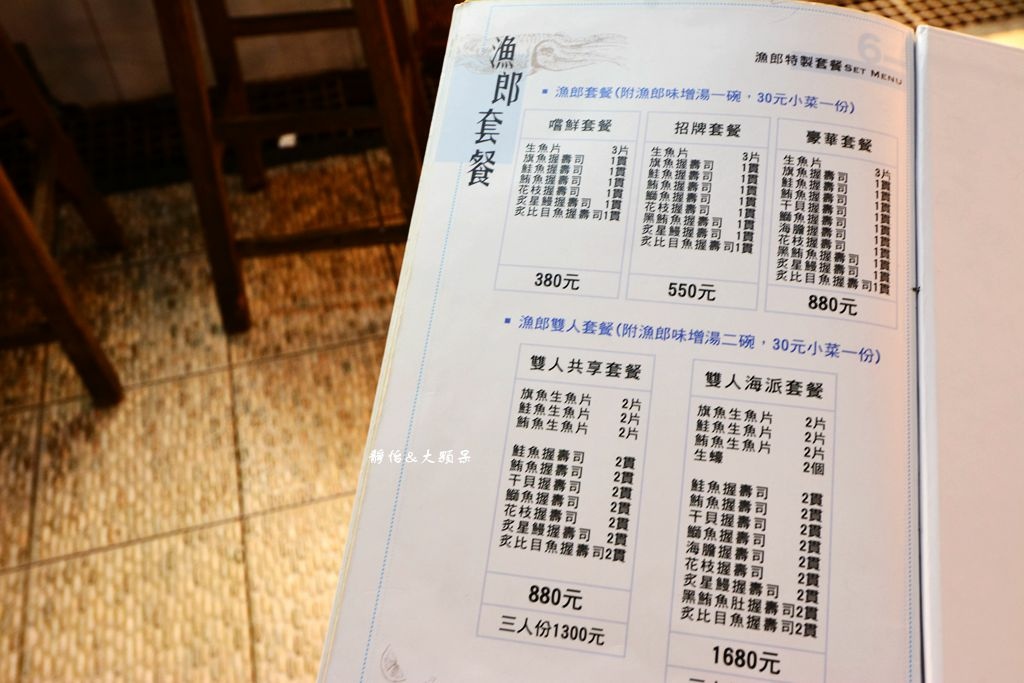 漁郎套餐
6
漁郎特製套餐SET MENU
▪ 漁郎套餐(附漁郎味增湯一碗，30元小菜一份)
嚐鮮套餐
生魚片 3片
旗魚握壽司 1貫
鮭魚握壽司 1貫
鮪魚握壽司 1貫
花枝握壽司 1貫
炙星鰻握壽司 1貫
炙比目魚握壽司1貫
380元
招牌套餐
生魚片 3片
旗魚握壽司 1貫
鮭魚握壽司 1貫
鮪魚握壽司 1貫
鰤魚握壽司 1貫
花枝握壽司 1貫
黑鮪魚握壽司 1貫
炙星鰻握壽司 1貫
炙比目魚握壽司1貫
550元
豪華套餐
生魚片 3片
旗魚握壽司 1貫
鮭魚握壽司 1貫
鮪魚握壽司 1貫
干貝握壽司 1貫
鰤魚握壽司 1貫
海膽握壽司 1貫
花枝握壽司 1貫
黑鮪魚握壽司 1貫
炙星鰻握壽司 1貫
炙比目魚握壽司1貫
880元
▪ 漁郎雙人套餐(附漁郎味增湯二碗，30元小菜一份)
雙人共享套餐
旗魚生魚片 2片
鮭魚生魚片 2片
鮪魚生魚片 2片
鮭魚握壽司 2貫
鮪魚握壽司 2貫
干貝握壽司 2貫
鰤魚握壽司 2貫
花枝握壽司 2貫
炙星鰻握壽司 2貫
炙比目魚握壽司2貫
880元
三人份1300元
雙人海派套餐
旗魚生魚片 2片
鮭魚生魚片 2片
鮪魚生魚片 2片
生蠔 2個
鮭魚握壽司 2貫
鮪魚握壽司 2貫
干貝握壽司 2貫
鰤魚握壽司 2貫
海膽握壽司 2貫
花枝握壽司 2貫
炙星鰻握壽司 2貫
黑鮪魚肚握壽司2貫
炙比目魚握壽司2貫
1680元
靜怡&大顆呆